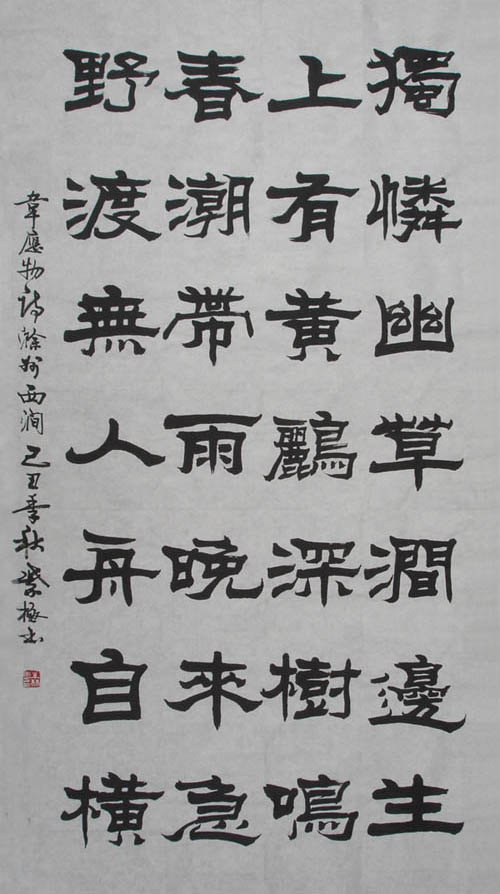 獨憐幽草澗邊生
上有黃鸝深樹鳴
春潮帶雨晚來急
野渡無人舟自橫
韋應物詩滁州西澗己丑季秋紫極書